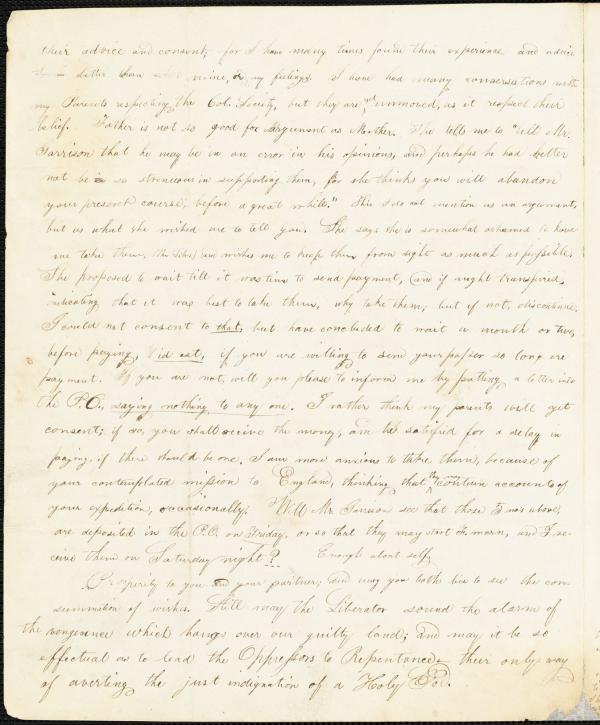 their advice and consent; for I have many times found their experience and advice
better than mine, or my feelings. I have had many conversations with
my Parents respecting the Col. Society, but they are yet unmoved, as it respect their
belief. Father is not so good for argument as Mother. She tells me to "tell Mr.
Garrison that he may be in an error in his opinions, and perhaps he had better
not be so strenuous in supporting them, for she thinks you will abandon
your present course, before a great while." This I do not mention as an argument,
but as what she wished me to tell you. She says she is somewhat ashamed to have
me take them, (the Libs) and wishes me to keep them from sight as much as possible.
She proposed to wait till it was time to send payment, and if aught transpired,
indicating that it was best to take them, why take them, but if not, discontinue.
I could not consent to that, but have concluded to wait a month or two,
before paying, id est, if you are willing to send your paper so long ere
payment. If you are not, will you please to inform me by putting a letter into
the P.O., saying nothing to any one. I rather think my parents will yet
consent; if so, you shall receive the money, and be satisfied for a delay in
paying, if there should be one. I am more anxious to take them, because of
your contemplated mission to England, thinking that they contain accounts of
your expedition, occasionally. Will Mr Garrison see that those 5 nos above,
are deposited in the P.O. on Friday, or so that they may start Sat. morn, and I re-
ceive them on Saturday night? Enough about self,
Prosperity to you and your partner; and may you both live to see the con-
summation of wishes. Still may the Liberator sound the alarm of
the vengeance which hangs over our guilty land; and may it be so
effectual as to lead the Oppressors to Repentance, their only way
of averting the just indignation of a Holy God.